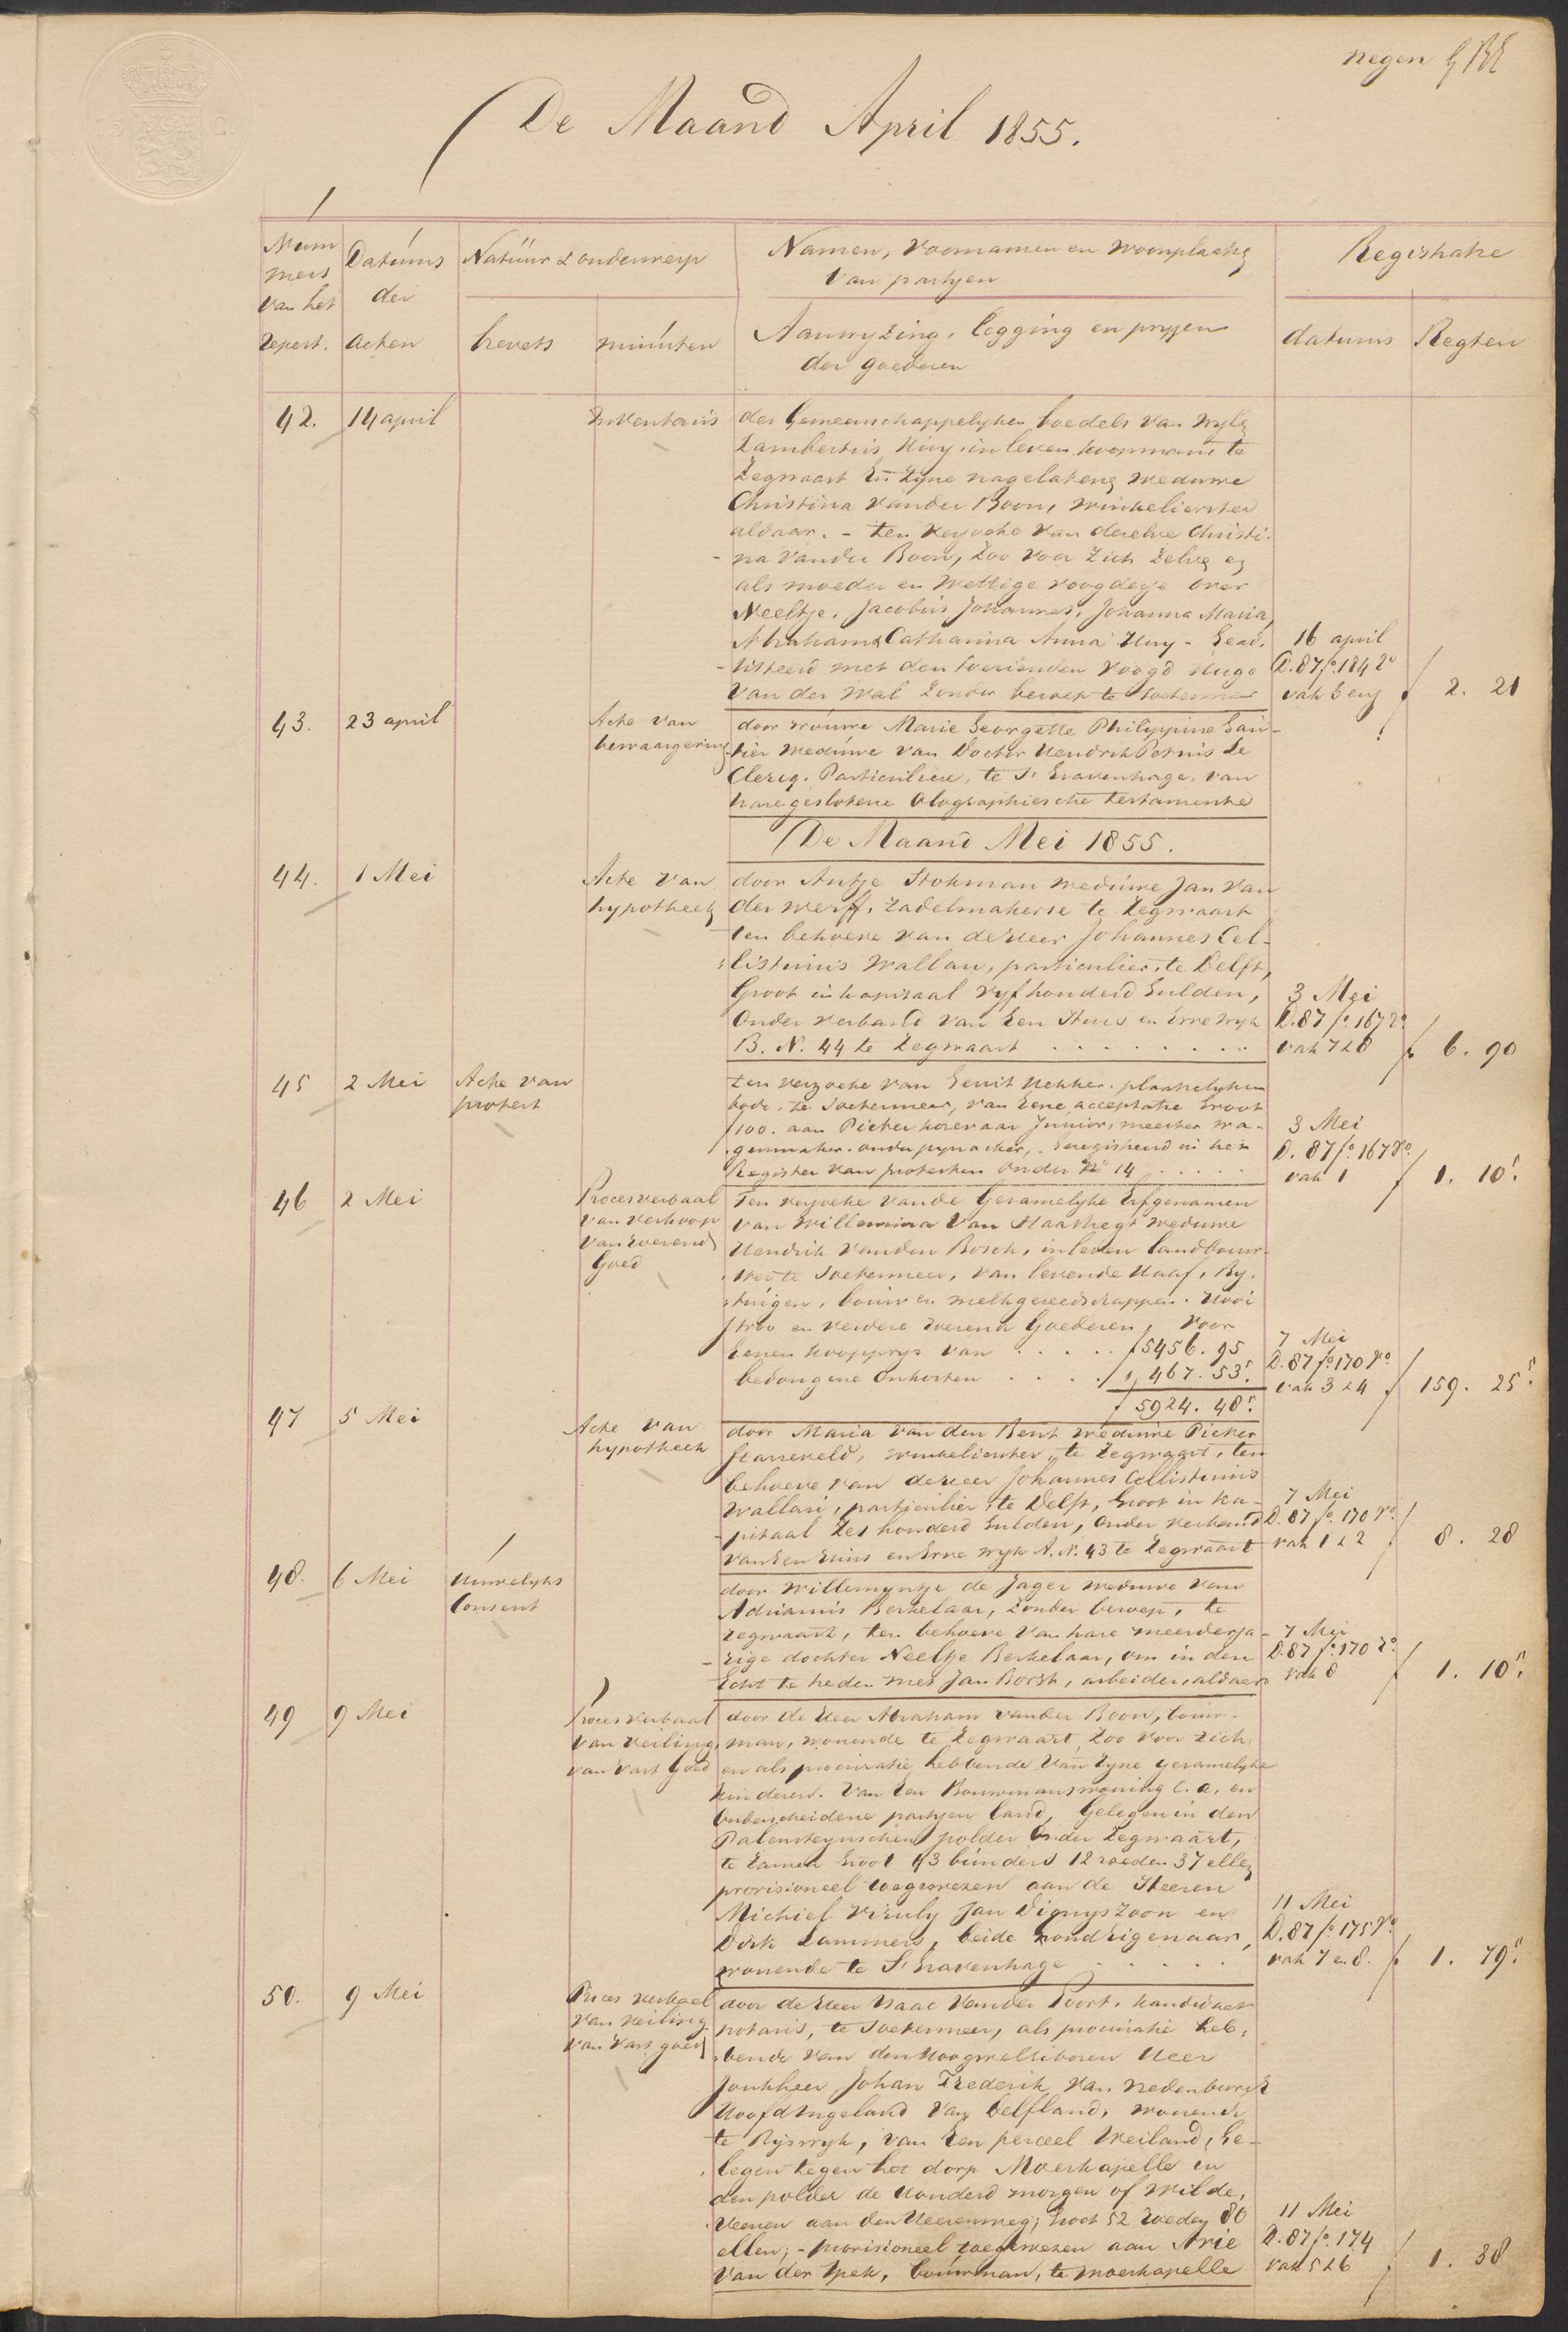 negen
De Maand April 1855.
Num
mers
van het
repert.
Datums
der
acten
Natuur & onderwerp
brevets
minuten
Namen, voornamen en woonplaatse
van partyen
Aanwyzing, legging en pryzen
der goederen
Registratie
datums
Regten
42.
14 april
Inventaris
des Gemeenschappelyken boedels van wyle
Lambertus Huy, in leven koopman, te
Zegwaart En Zyne nagelatene weduwe
Christina vander Boon, winkelierster
aldaar. - ten verzoeke van dezelve Christi-
- na vander Boon, Zoo voor Zich Zelve en
als moeder en wettige voogdesse over
Neeltje, Jacobus Johannes, Johanna Maria,
Abraham & Catharina Anna Huy - Gead-
- sisteerd met den toezienden voogd Hugo
van der Wal Zonder beroep te Soetermeer
16 april
D. 87 fo. 184 ro
vak 6 en
f 2. 21
43.
23 april
Acte van
bewaargeving
door vrouwe Marie Georgette Philippine Gau-
tier weduwe van Doctor Hendrik Petrus de
Clercq. Particuliere, te s' Gravenhage, van
hare geslotene Olographische testamente
De Maand Mei 1855.
44.
1 Mei
Acte van
hypotheek
door Antje Stokman weduwe Jan van
der Werff, Zadelmakerse te Zegwaart
ten behoeve van de Heer Johannes Cel-
listinus Wallau, particulier, te Delft,
Groot in kapitaal vyfhonderd Gulden,
Onder verband van Een Huis en Erve Wyk
B. N. 44 te Zegwaart . . . . . . . .
3 Mei
D. 87 fo. 167 ro
vak 7 & 8
f 6. 90
45
2 Mei
Acte van
protest
ten verzoeke van Gerrit Hekker, plaatselyken
bode, te Soetermeer, van Eene acceptatie Groot
f 100. aan Pieter Junior, meester wa-
genmaker, onder pynacker, - Geregistreerd in het
Register van protesten Onder No 14 . . . . .
3 Mei
D. 87 fo. 167 vo
vak 1
f 1. 10 5.
46
2 Mei
Proces verbaal
van verkoop
van roerend
Goed
Ten verzoeke van de Gezamelyke Erfgenamen
van Willemina Van weduwe
Hendrik vanden Bosch, in leven landbouw-
ster te Soetermeer, van levende Haaf, Ry-
tuigen, bouw en melkgereedschappen, Hooi
stroo en verdere roerende Goederen, voor
Eenen koopprys van . . . . . f 5456. 95
bedongene Onkosten . . . . f 467. 53 5.
f 5924. 48 5.
7 Mei
D. 87 fo. 170 vo
vak 3 & 4
f 159. 25 5.
47
5 Mei
Acte van
hypotheek
door Maria van den Bent weduwe Pieter
winkelierster, te Zegwaart, ten
behoeve van de Heer Johannes Cellistinus
Wallau, particulier, te Delft, Groot in Ka-
- pitaal Zes honderd Gulden, Onder verband
van Een Huis en Erve wyk A. N. 43 te Zegwaart
7 Mei
D. 87 fo. 170 vo
vak 1 & 2
f 8. 28
48.
6 Mei
Huwelyks
Consent
door Willemyntje de Jager weduwe van
Adrianus Berkelaar, Zonder beroep, te
Zegwaart, ten behoeve van hare meerderja-
- rige dochter Neeltje Berkelaar, om in den
Echt te treden met Jan Borst, arbeider, aldaar
7 Mei
D. 87 fo. 170 ro
vak 8
f 1. 10 5.
49
9 Mei
Proces verbaal
van veiling
van vast Goed
door de Heer Abraham vander Boon, bouw-
man, wonende te Zegwaart, Zoo voor Zich,
en als procuratie hebbende van Zyne gezamelyke
kinderen. van Een Bouwmanswoning C. a. en
Onderscheidene partyen land, Gelegen in den
Palensteynschen polder Onder Zegwaart,
te Zamen Groot 43 bunders 12 roeden 37 ellen
provisioneel toegewezen aan de Heeren
Michiel Viruly Jan Dignyszoon en
Dirk Lammers, beide Grondeigenaars,
wonende te S' Gravenhage . . . . .
11 Mei
D. 87 fo. 175 vo
vak 7 en 8.
f 1. 79 5.
50.
9 Mei
Proces verbaal
van veiling
van vast goed
door de Heer Isaac vander Poort, kandidaat
notaris, te Soetermeer, als procuratie heb-
bende van den Hoogwelgeboren Heer
Jonkheer Johan Frederik van Redenburgh
Hoofdingeland van Delfland, wonende
te Ryswyk, van Een perceel Weiland, Ge-
legen tegen het dorp Moerkapelle in
den polder de Honderd morgen of Wilde,
Veenen aan den Heerenweg, Groot 52 Roeden 80
ellen; - provisioneel toegewezen aan Arie
van der Spek, bouwman, te Moerkapelle
11 Mei
D. 87 fo. 174
vak 5 & 6
f 1. 38